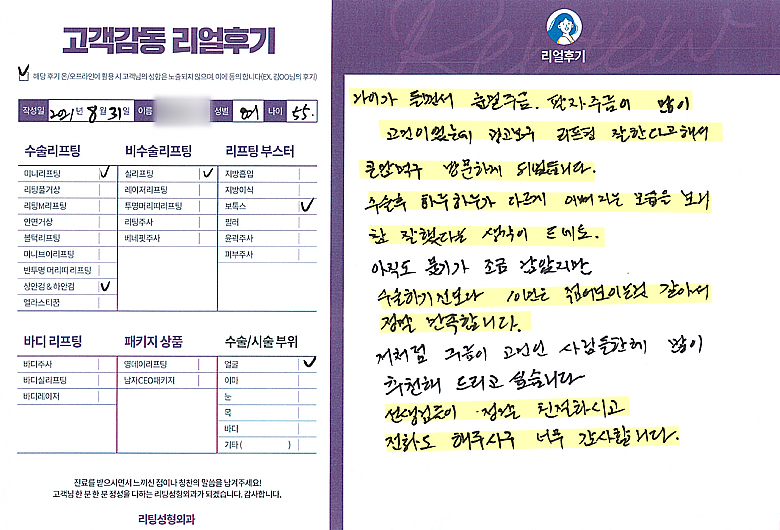 고객감동 리얼후기
해당 후기 온/오프라인이 활용 시 고객님의 성함은 노출되지 않으며, 이에 동의 합니다(EX. 김OO님의 후기)
작성일 2021년 8월 31일 이름 성별 여 나이 55.
수술리프팅
미니리프팅
리팅풀거상
리팅M리프팅
안면거상
볼턱리프팅
미니브이리프팅
반투명 머리띠 리프팅
상안검 & 하안검
엘라스티꿈
비수술리프팅
실리프팅
레이저리프팅
투명머리띠리프팅
리팅주사
베네핏주사
리프팅 부스터
지방흡입
지방이식
보톡스
필러
윤곽주사
피부주사
바디 리프팅
바디주사
바디실리프팅
바디레이저
패키지 상품
영데이리프팅
남자CEO패키지
수술/시술 부위
얼굴
이마
눈
목
바디
기타 ( )
진료를 받으시면서 느끼신 점이나 칭찬의 말씀을 남겨주세요!
고객님 한 분 한 분 정성을 다하는 리팅성형외과가 되겠습니다. 감사합니다.
리팅성형외과
Review
리얼후기
나이가 들면서 눈밑주름. 팔자주름이 많이
고민이었는데 광고보구 리프팅 잘한다고해서
큰맘먹구 방문하게 되었습니다.
수술후 하루하루가 다르게 이뻐지는 모습을 보니
참 잘했다는 생각이 드네요.
아직도 붓기가 조금 남았지만
수술하기전보다 10년은 젊어보이는것 같아서
정말 만족합니다.
저처럼 주름이 고민인 사람들한테 많이
추천해 드리고 싶습니다
선생님들이 정말 친절하시고
전화도 해주시구 너무 감사합니다.